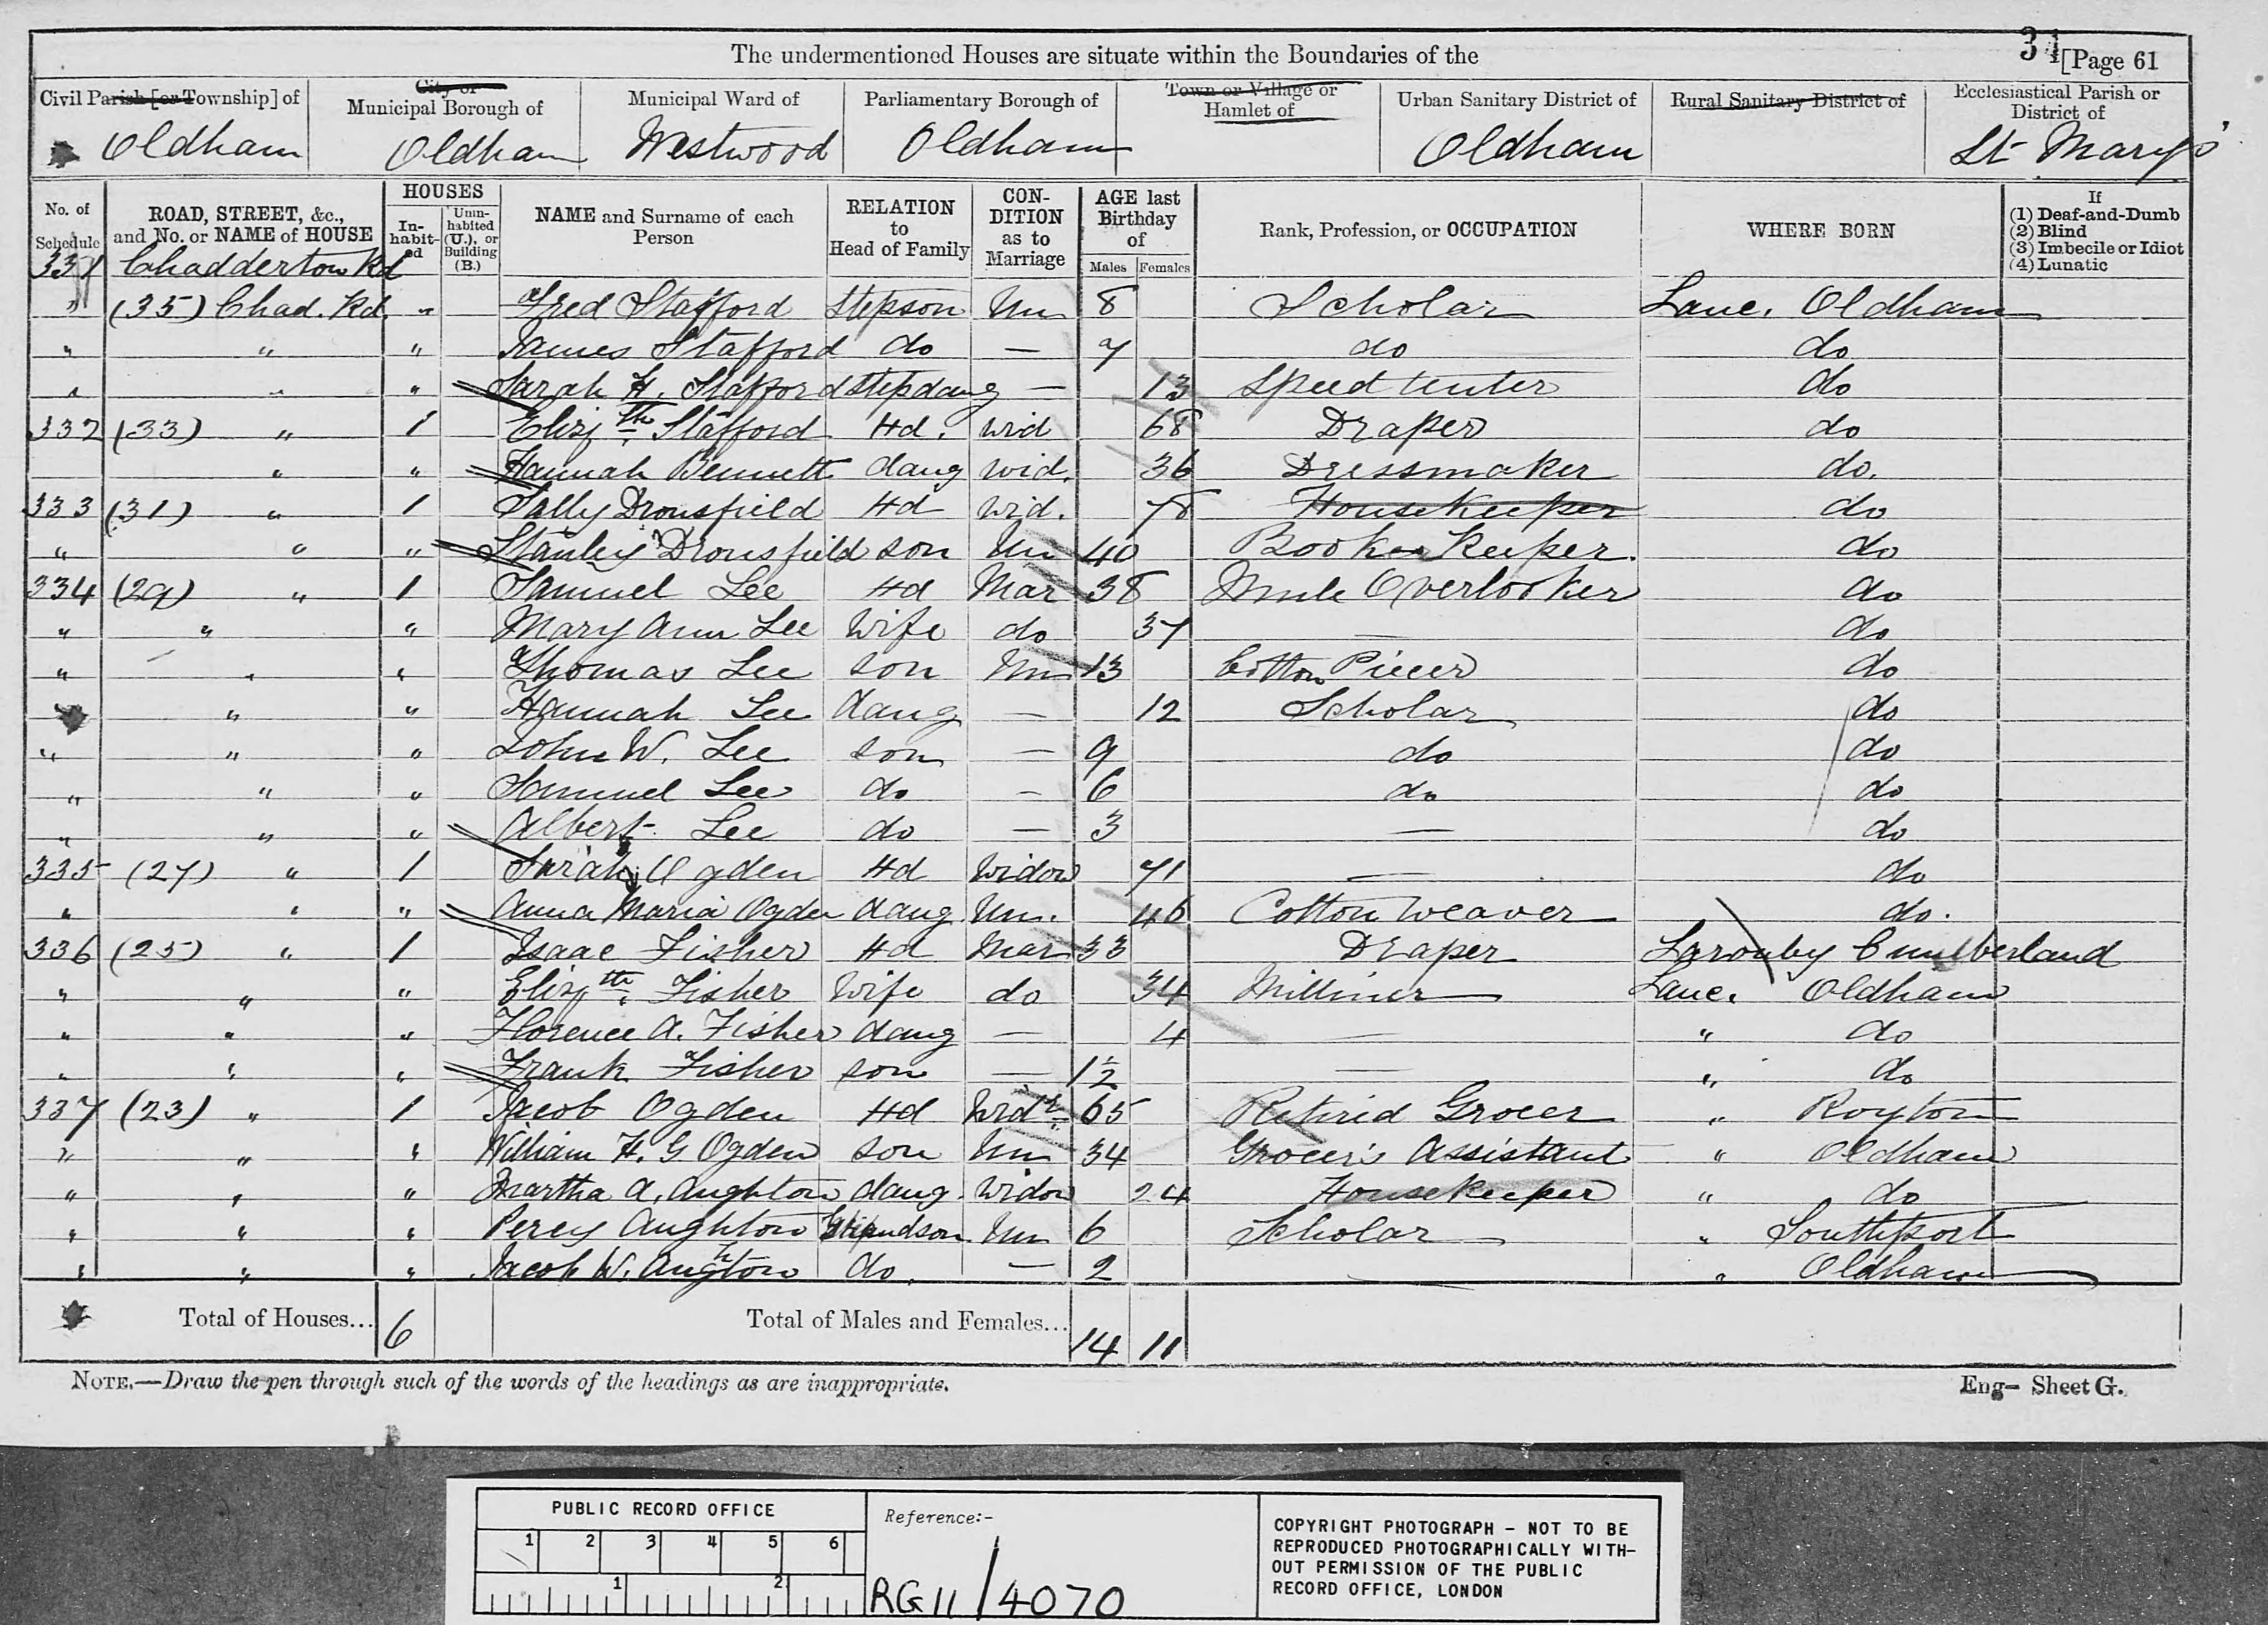 The undermentioned Houses are situate within the Boundaries of the
34 [Page 61
Civil Parish [or Township] of
City or Municipal Borough of
Municipal Ward of
Parliamentary Borough of
Town or Village or Hamlet of
Urban Sanitary District of
Rural Sanitary District of
Ecclesiastical Parish or District of
Oldham Oldham Westwood Oldham Oldham St Mary's
No. of Schedule
ROAD, STREET, &c., and No. or NAME of HOUSE
HOUSES
Inhabited
Uninhabited (U.), or Building (B.)
NAME and Surname of each Person
RELATION to Head of Family
CONDITION as to Marriage
AGE last Birthday of
Males Females
Rank, Profession, or OCCUPATION
WHERE BORN
If
(1) Deaf-and-Dumb
(2) Blind
(3) Imbecile or Idiot
(4) Lunatic
331 Chadderton Rd
" (35) Chad. Rd. " Fred Stafford Stepson Un 8 Scholar Lanc. Oldham
" " " James Stafford do — 7 do do
" " " Sarah H. Stafford stepdaug — 13 Speed tenter do
332 (33) " 1 Elizth. Stafford Hd. Wid 68 Draper do
" " Hannah Bennett daug Wid. 36 Dressmaker do.
333 (31) " 1 Sally Dronsfield Hd Wid. 78 Housekeeper do
" " " Stanley Dronsfield son Un 40 Book Keeper. do
334 (29) " 1 Samuel Lee Hd Mar 38 Mule Overlooker do
" " " Mary Ann Lee Wife do 37 — do
" " " Thomas Lee son Un 13 Cotton Piecer do
" " Hannah Lee daug — 12 Scholar do
" " " John W. Lee son — 9 do do
" " " Samuel Lee do — 6 do do
" " " Albert Lee do — 3 — do
335 (27) " 1 Sarah Ogden Hd Widow 71 — do
" " " Anna Maria Ogden daug Un. 46 Cotton Weaver do.
336 (25) " 1 Isaac Fisher Hd Mar 33 Draper Cumberland
" " " Elizth. Fisher Wife do 34 Milliner Lanc. Oldham
" " " Florence A. Fisher daug — 4 — " do
" " " Frank Fisher son — 1½ — " do
337 (23) " 1 Jacob Ogden Hd Widr. 65 Retired Grocer " Royton
" " " William H. G Ogden son Un 34 Grocer's Assistant " Oldham
" " " Martha A. Aughton daug. Widow 24 Housekeeper " do
" " " Percy Aughton Grandson Un 6 Scholar " Southport
" " " Jacob W. Aughton do. — 2 — " Oldham
Total of Houses... 6 Total of Males and Females... 14 11
NOTE.—Draw the pen through such of the words of the headings as are inappropriate.
Eng– Sheet G.
PUBLIC RECORD OFFICE
1 2 3 4 5 6
1 2
Reference:-
RG 11/4070
COPYRIGHT PHOTOGRAPH – NOT TO BE
REPRODUCED PHOTOGRAPHICALLY WITH-
OUT PERMISSION OF THE PUBLIC
RECORD OFFICE, LONDON